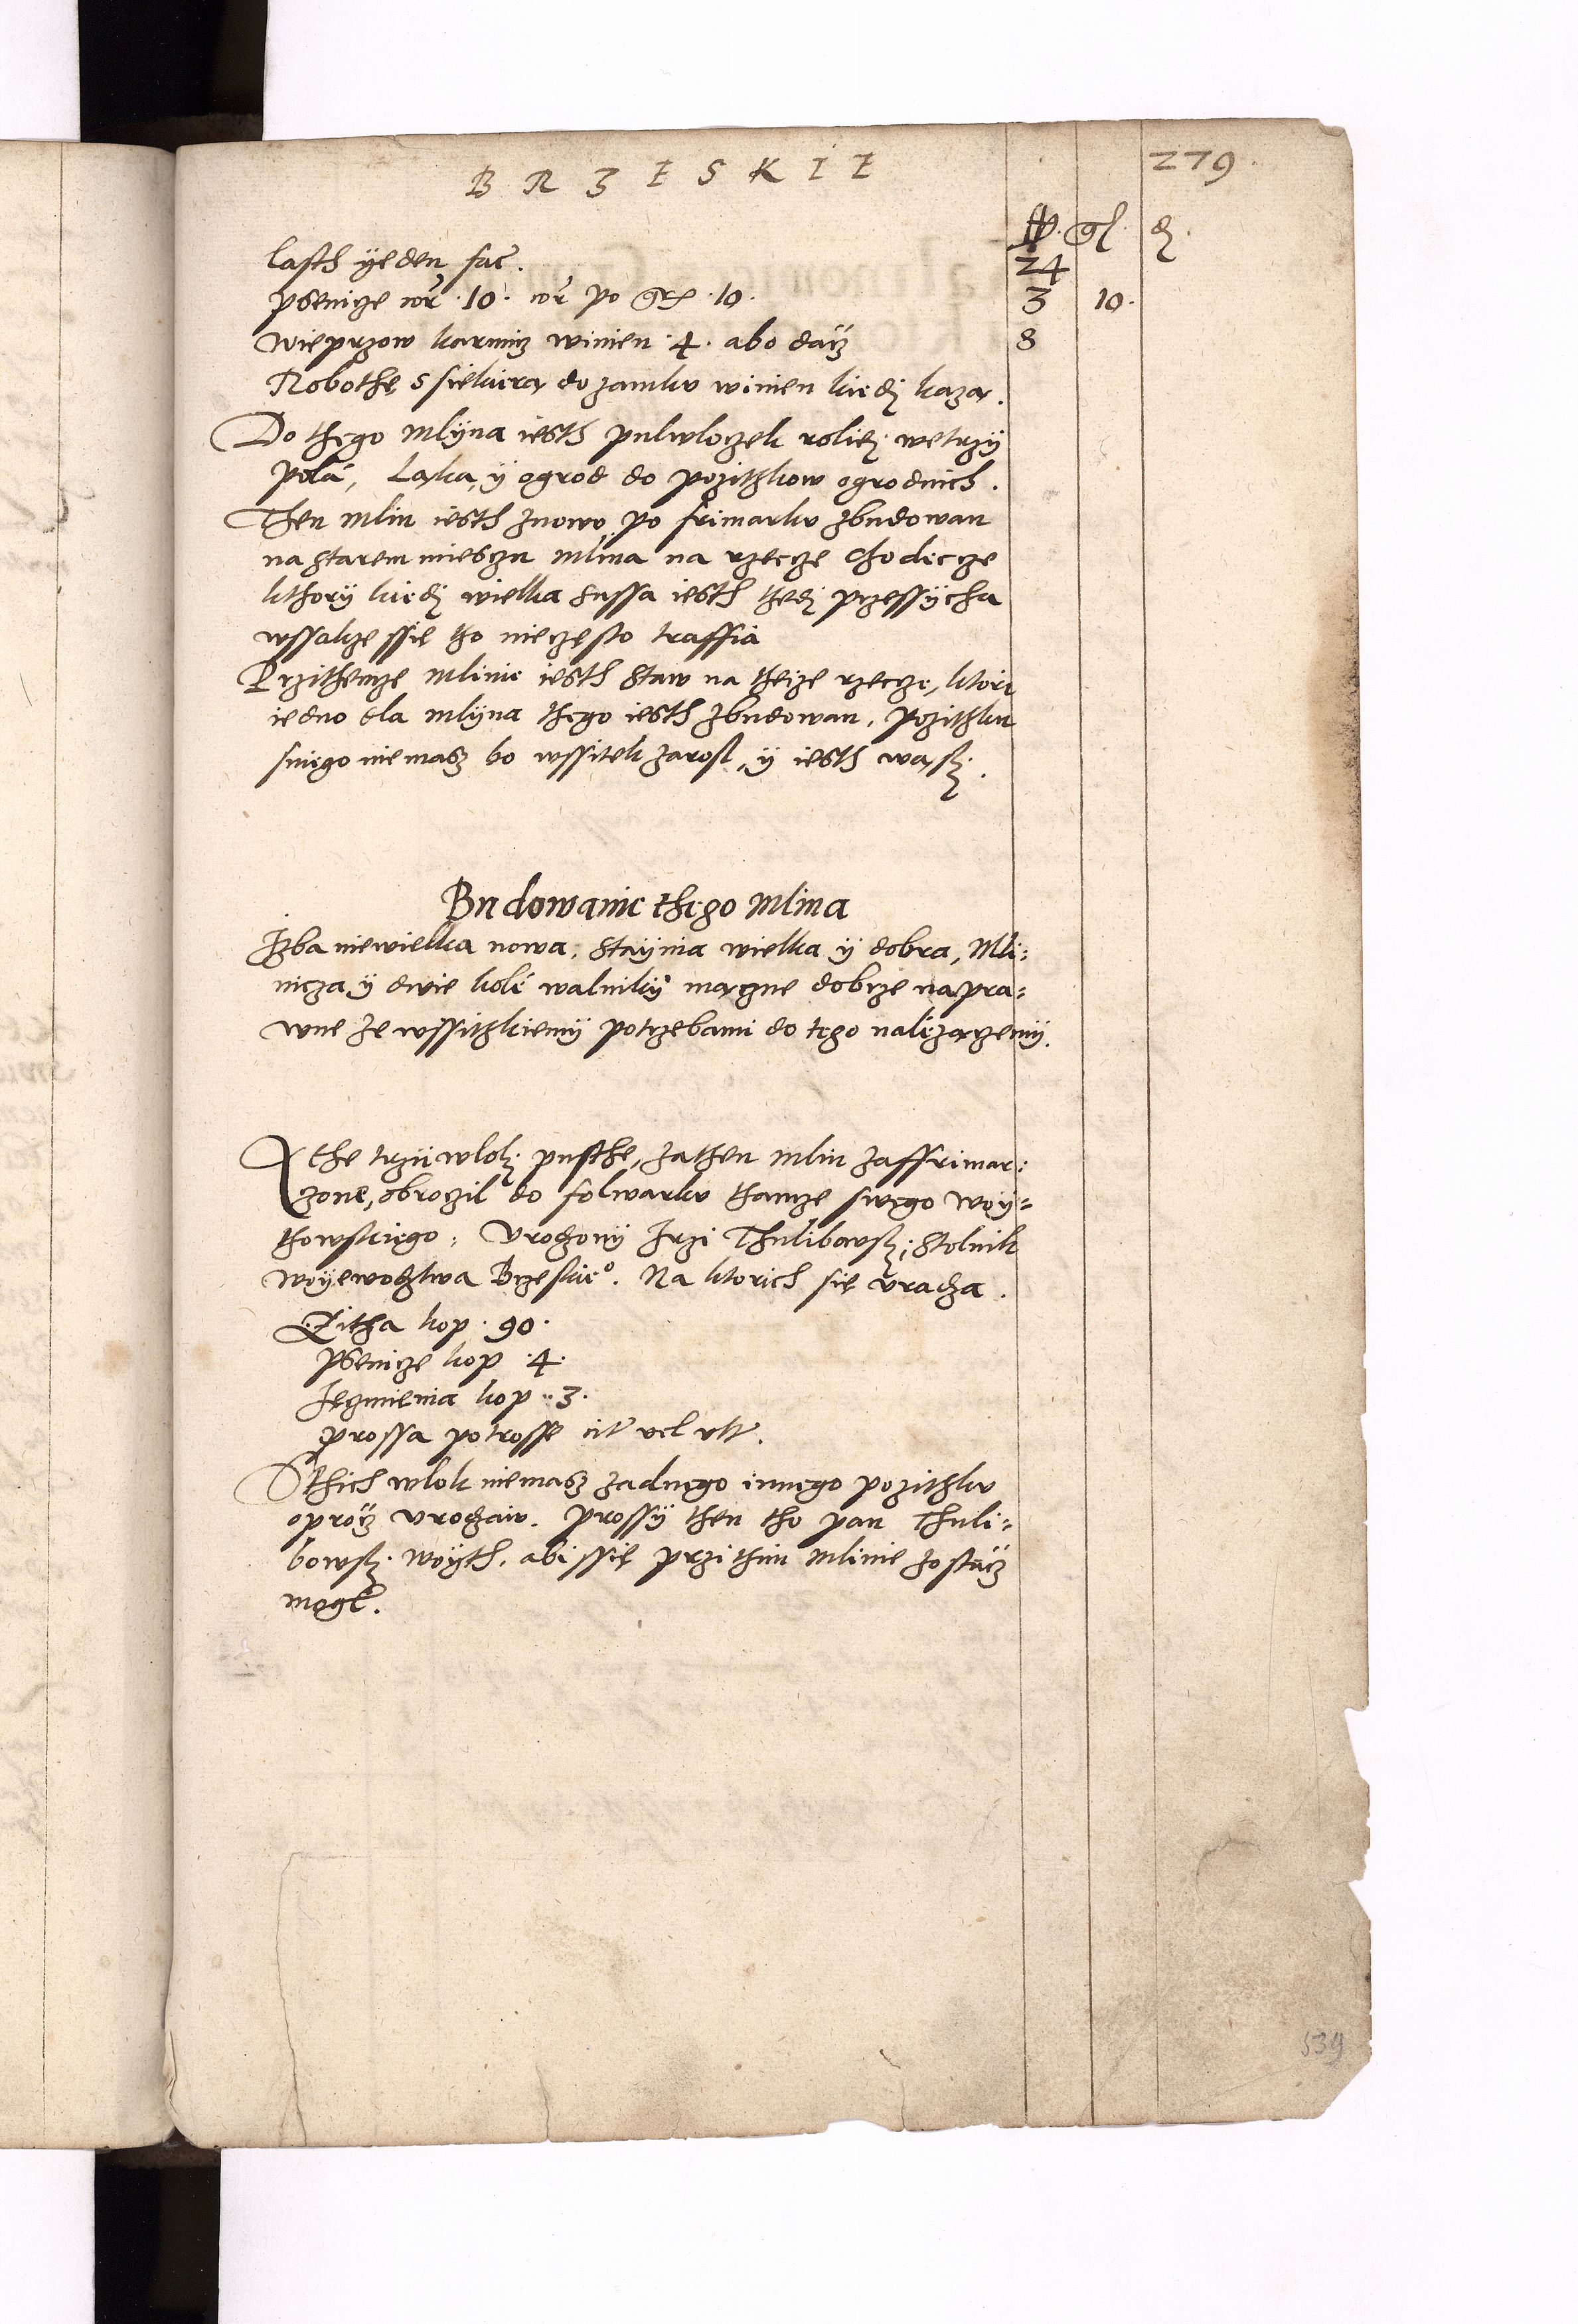 BRZESKIE
279
fl. gr. d.
Lasth yeden fac.
24
Psenicze cor. 10. cor po gr. 10.
3 10.
Wieprzow karmicz winien 4. abo dacz
8
Robothę s siekierą do zamku winien kiedj kazą.
Do thego mlyna iesth pulwloczek roliej wetrzy
Pola, Ląka, y ogrod do pozithkow ogrodnich.
Then mlin iesth znowv po frimarkv zbudowan
na starem miesczu mlina na rzecze Chodecze
kthory kiedj wielka sussa iesth thedj przessycha
wssakze ssię tho nieczęsto traffia
Przithemze mlinie iesth staw na theize rzecze, ktori
iedno dla mlyna thego iesth zbudowan, pozithku
sniego niemasz bo wssitek zarosl, y iesth wąskj.
Budowanie thego mlina
Izba niewielka nowa, staynia wielka y dobra, Mli-
nicza y dwie kole walniky mączne dobrze napra-
wne ze wssithkiemy potrzebami do tego nalezączemy.
A the trzy wlokj pusthe, za then mlin zaffrimar-
czone, obroczil do folwarku thamze swego woy-
thowskiego, Vrodzony Irzi Thulibowskj, Stolnik
woyewodztwa Brzeskieo. Na ktorich się vradza.
Zitha kop. 90.
Psenicze kop 4.
Ieczmienia kop. 3.
Prossa potrosse cit vel vlt.
S thich wlok niemasz zadnego innego pozithkv
oprocz vrodzaiv. Prossy then tho pan Thuli-
bowskj woyth, abi ssię przi thim mlinie zostacz
mogl.
539